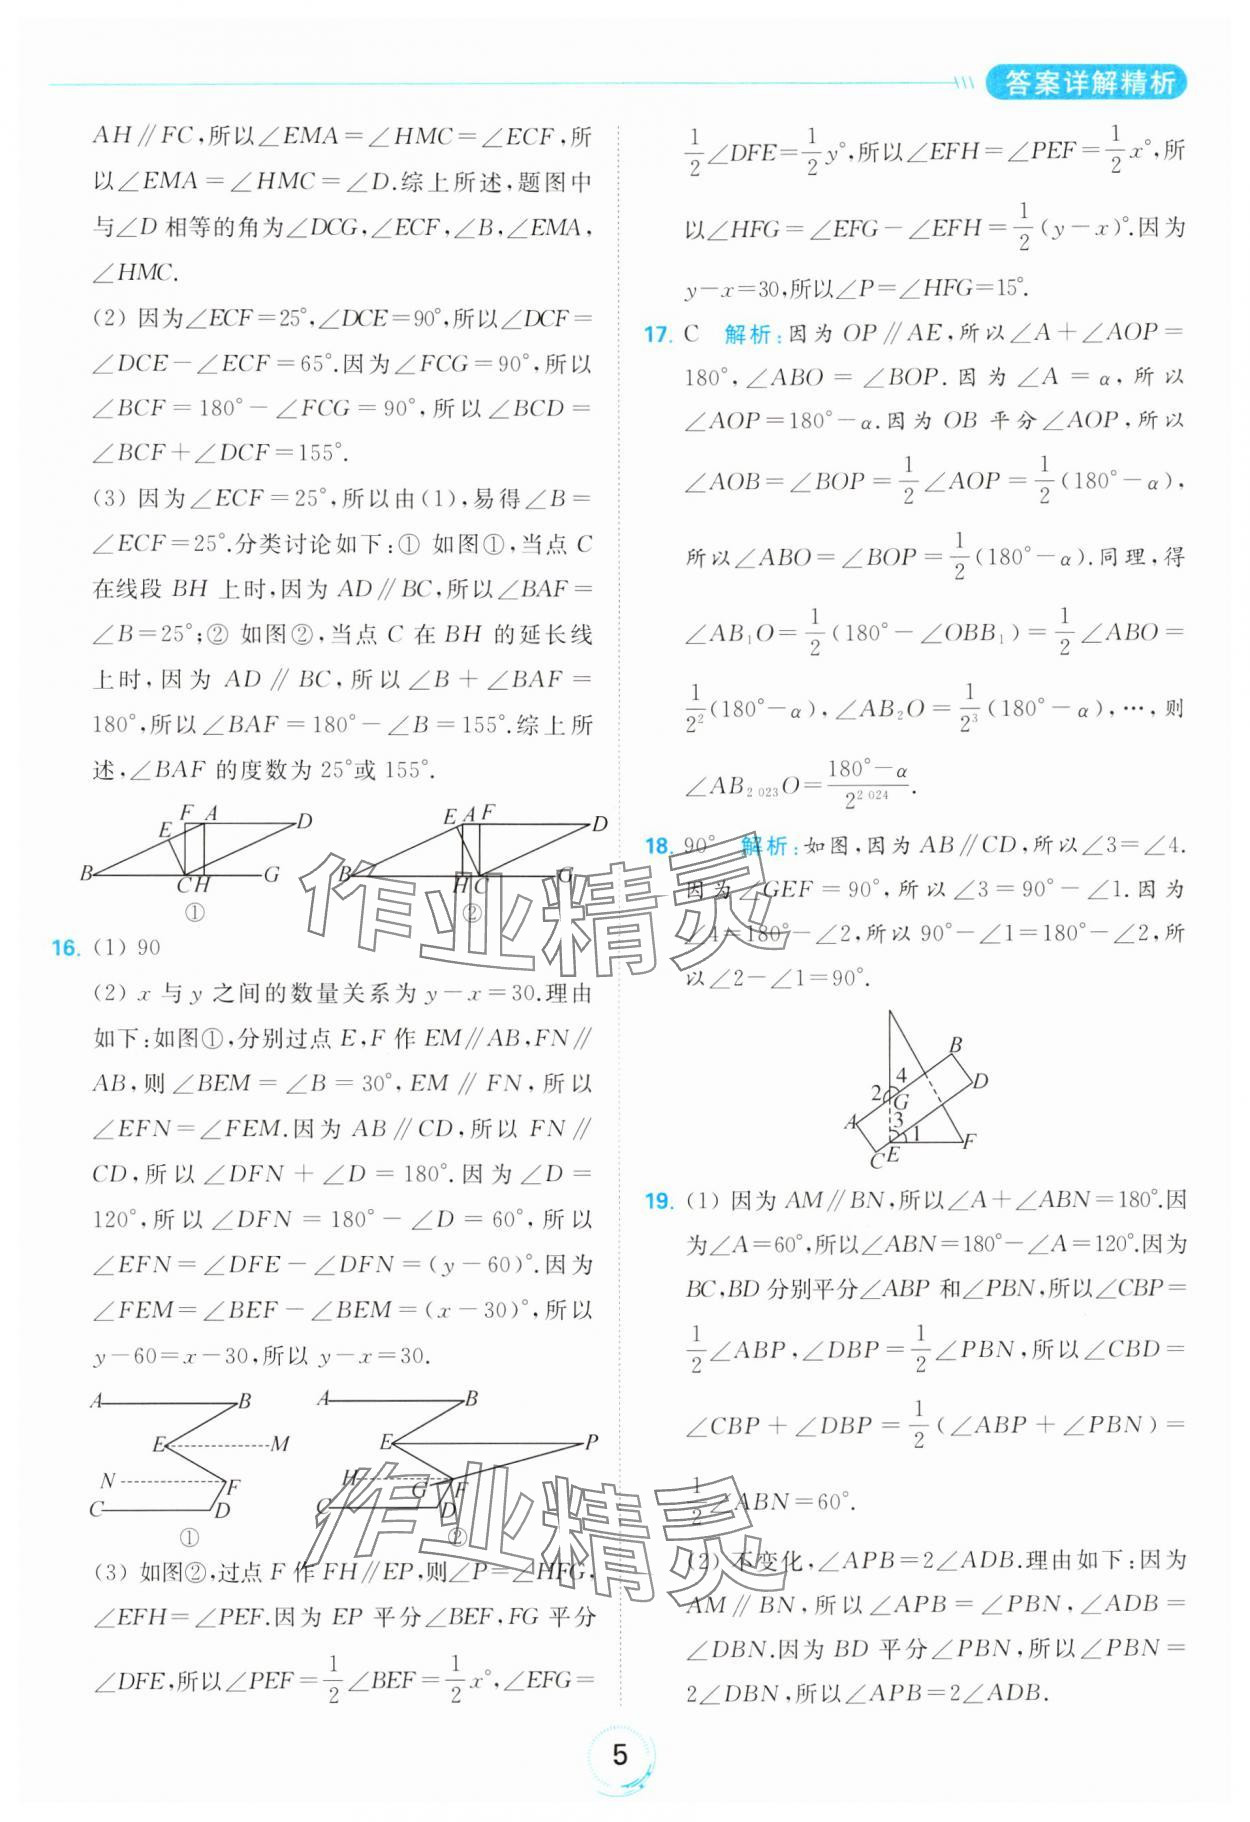 答案详解精析
AH∥FC,所以∠EMA=∠HMC=∠ECF,所
以∠EMA=∠HMC=∠D.综上所述,题图中
与∠D相等的角为∠DCG,∠ECF,∠B,∠EMA,
∠HMC.
(2) 因为∠ECF=25°,∠DCE=90°,所以∠DCF=
∠DCE-∠ECF=65°.因为∠FCG=90°,所以
∠BCF=180°-∠FCG=90°,所以∠BCD=
∠BCF+∠DCF=155°.
(3) 因为∠ECF=25°,所以由(1),易得∠B=
∠ECF=25°.分类讨论如下:① 如图①,当点C
在线段BH上时,因为AD∥BC,所以∠BAF=
∠B=25°;② 如图②,当点C在BH的延长线
上时,因为AD∥BC,所以∠B+∠BAF=
180°,所以∠BAF=180°-∠B=155°.综上所
述,∠BAF的度数为25°或155°.
F A D E B C H G ①
E A F D B H C G ②
16. (1) 90
(2) x与y之间的数量关系为y-x=30.理由
如下:如图①,分别过点E,F作EM∥AB,FN∥
AB,则∠BEM=∠B=30°,EM∥FN,所以
∠EFN=∠FEM.因为AB∥CD,所以FN∥
CD,所以∠DFN+∠D=180°.因为∠D=
120°,所以∠DFN=180°-∠D=60°,所以
∠EFN=∠DFE-∠DFN=(y-60)°.因为
∠FEM=∠BEF-∠BEM=(x-30)°,所以
y-60=x-30,所以y-x=30.
A B E M N F C D ①
A B E P H G F C D ②
(3) 如图②,过点F作FH∥EP,则∠P=∠HFG,
∠EFH=∠PEF.因为EP平分∠BEF,FG平分
∠DFE,所以∠PEF=1/2∠BEF=1/2x°,∠EFG=
1/2∠DFE=1/2y°,所以∠EFH=∠PEF=1/2x°,所
以∠HFG=∠EFG-∠EFH=1/2(y-x)°.因为
y-x=30,所以∠P=∠HFG=15°.
17. C 解析:因为OP∥AE,所以∠A+∠AOP=
180°,∠ABO=∠BOP.因为∠A=α,所以
∠AOP=180°-α.因为OB平分∠AOP,所以
∠AOB=∠BOP=1/2∠AOP=1/2(180°-α),
所以∠ABO=∠BOP=1/2(180°-α).同理,得
∠AB₁O=1/2(180°-∠OBB₁)=1/2∠ABO=
1/2²(180°-α),∠AB₂O=1/2³(180°-α),…,则
∠AB₂₀₂₃O=(180°-α)/2²⁰²⁴.
18. 90° 解析:如图,因为AB∥CD,所以∠3=∠4.
因为∠GEF=90°,所以∠3=90°-∠1.因为
∠4=180°-∠2,所以90°-∠1=180°-∠2,所
以∠2-∠1=90°.
B D 4 2 G A 3 1 F C E
19. (1) 因为AM∥BN,所以∠A+∠ABN=180°.因
为∠A=60°,所以∠ABN=180°-∠A=120°.因为
BC,BD分别平分∠ABP和∠PBN,所以∠CBP=
1/2∠ABP,∠DBP=1/2∠PBN,所以∠CBD=
∠CBP+∠DBP=1/2(∠ABP+∠PBN)=
1/2∠ABN=60°.
(2) 不变化,∠APB=2∠ADB.理由如下:因为
AM∥BN,所以∠APB=∠PBN,∠ADB=
∠DBN.因为BD平分∠PBN,所以∠PBN=
2∠DBN,所以∠APB=2∠ADB.
作业精灵
作业精灵
5